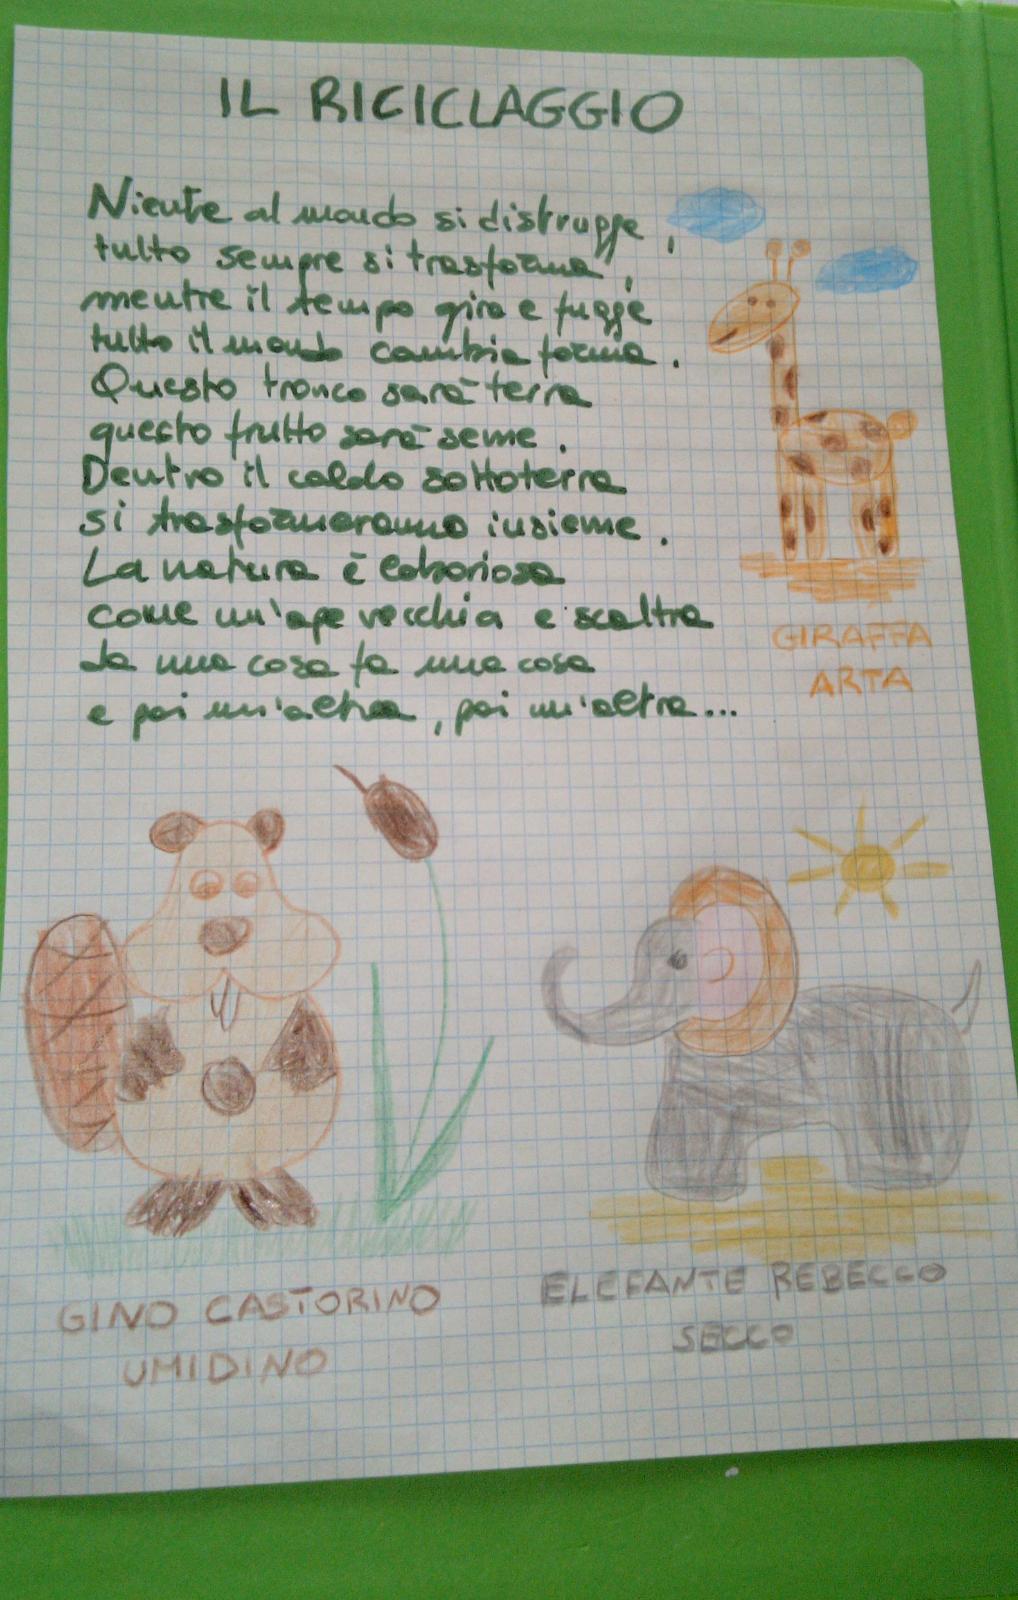 IL RICICLAGGIO
Niente al mondo si distrugge,
tutto sempre si trasforma,
mentre il tempo gira e fugge
tutto il mondo cambia forma.
Questo tronco sarà terra
questo frutto sarà seme.
Dentro il caldo sottoterra
si trasformeranno insieme.
La natura è laboriosa
come un'ape vecchia e scaltra
da una cosa fa una cosa
e poi un'altra, poi un'altra...
GIRAFFA
ARTA
GINO CASTORINO
UMIDINO
ELEFANTE REBECCO
SECCO